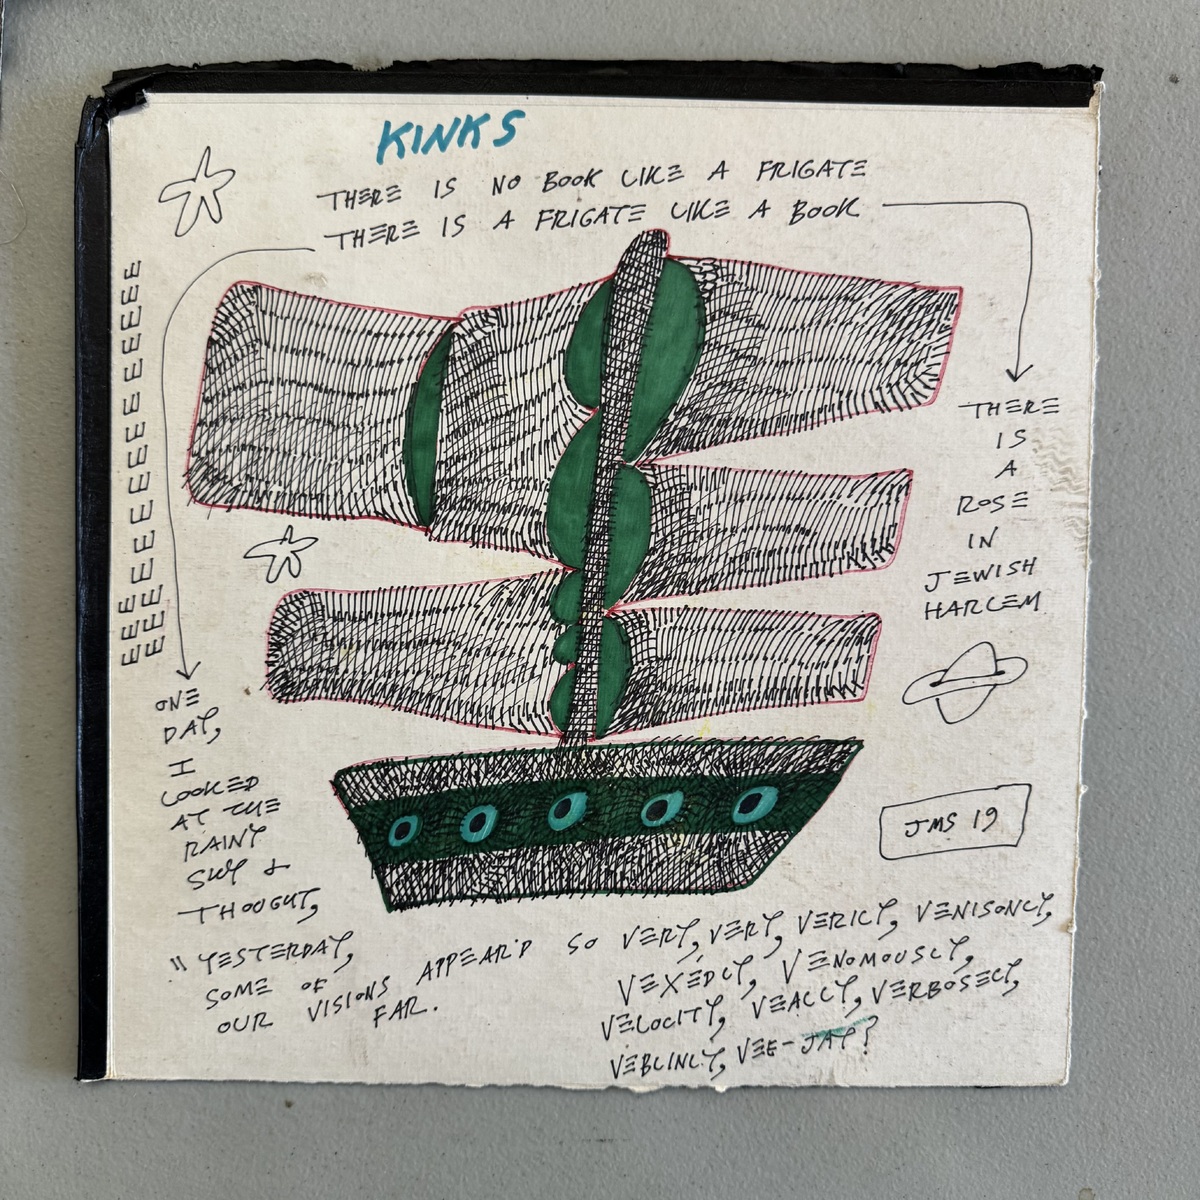 KINKS
THERE IS NO BOOK LIKE A FRIGATE
THERE IS A FRIGATE LIKE A BOOK
THERE
IS
A
ROSE
IN
JEWISH
HARLEM
JMS 19
ONE
DAY,
I
LOOKED
AT THE
RAINY
SKY &
THOUGHT,
"YESTERDAY,
SOME OF
OUR VISIONS APPEAR'D SO VERY, VERY, VERILY, VENISONLY,
FAR.
VEXEDLY, VENOMOUSLY,
VELOCITY, VEALLY, VERBOSELY,
VEBLINLY, VEE-JAY?